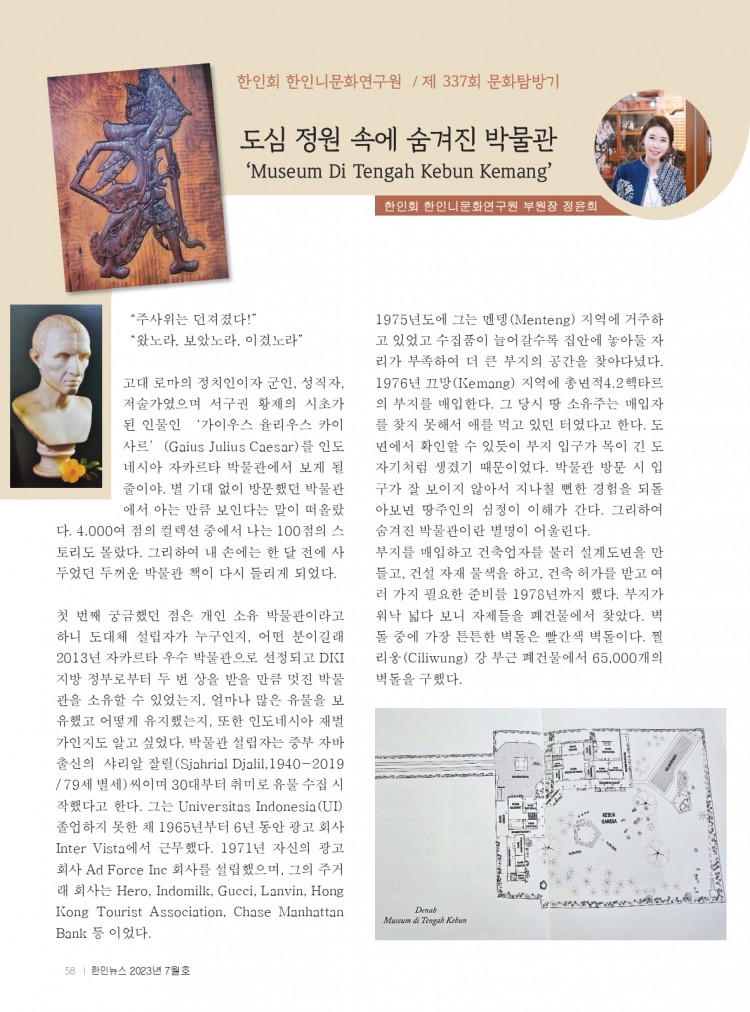 한인회 한인니문화연구원 / 제 337회 문화탐방기
도심 정원 속에 숨겨진 박물관
‘Museum Di Tengah Kebun Kemang’
한인회 한인니문화연구원 부원장 정윤희
“주사위는 던져졌다!”
“왔노라, 보았노라, 이겼노라”
고대 로마의 정치인이자 군인, 성직자,
저술가였으며 서구권 황제의 시초가
된 인물인 ‘가이우스 율리우스 카이
사르’ (Gaius Julius Caesar)를 인도
네시아 자카르타 박물관에서 보게 될
줄이야. 별 기대 없이 방문했던 박물관
에서 아는 만큼 보인다는 말이 떠올랐
다. 4.000여 점의 컬렉션 중에서 나는 100점의 스
토리도 몰랐다. 그리하여 내 손에는 한 달 전에 사
두었던 두꺼운 박물관 책이 다시 들리게 되었다.
첫 번째 궁금했던 점은 개인 소유 박물관이라고
하니 도대체 설립자가 누구인지, 어떤 분이길래
2013년 자카르타 우수 박물관으로 선정되고 DKI
지방 정부로부터 두 번 상을 받을 만큼 멋진 박물
관을 소유할 수 있었는지, 얼마나 많은 유물을 보
유했고 어떻게 유지했는지, 또한 인도네시아 재벌
가인지도 알고 싶었다. 박물관 설립자는 중부 자바
출신의 샤리알 잘릴(Sjahrial Djalil,1940-2019
/79세 별세)씨이며 30대부터 취미로 유물 수집 시
작했다고 한다. 그는 Universitas Indonesia(UI)
졸업하지 못한 채 1965년부터 6년 동안 광고 회사
Inter Vista에서 근무했다. 1971년 자신의 광고
회사 Ad Force Inc 회사를 설립했으며, 그의 주거
래 회사는 Hero, Indomilk, Gucci, Lanvin, Hong
Kong Tourist Association, Chase Manhattan
Bank 등 이었다.
1975년도에 그는 멘뎅(Menteng) 지역에 거주하
고 있었고 수집품이 늘어갈수록 집안에 놓아둘 자
리가 부족하여 더 큰 부지의 공간을 찾아다녔다.
1976년 끄망(Kemang) 지역에 총면적4.2헥타르
의 부지를 매입한다. 그 당시 땅 소유주는 매입자
를 찾지 못해서 애를 먹고 있던 터였다고 한다. 도
면에서 확인할 수 있듯이 부지 입구가 목이 긴 도
자기처럼 생겼기 때문이었다. 박물관 방문 시 입
구가 잘 보이지 않아서 지나칠 뻔한 경험을 되돌
아보면 땅주인의 심정이 이해가 간다. 그리하여
숨겨진 박물관이란 별명이 어울린다.
부지를 매입하고 건축업자를 불러 설계도면을 만
들고, 건설 자재 물색을 하고, 건축 허가를 받고 여
러 가지 필요한 준비를 1978년까지 했다. 부지가
워낙 넓다 보니 자제들을 폐건물에서 찾았다. 벽
돌 중에 가장 튼튼한 벽돌은 빨간색 벽돌이다. 찔
리웅(Ciliwung) 강 부근 폐건물에서 65,000개의
벽돌을 구했다.
KEBUN
Denah
Museum di Tengah Kebun
58 | 한인뉴스 2023년 7월호